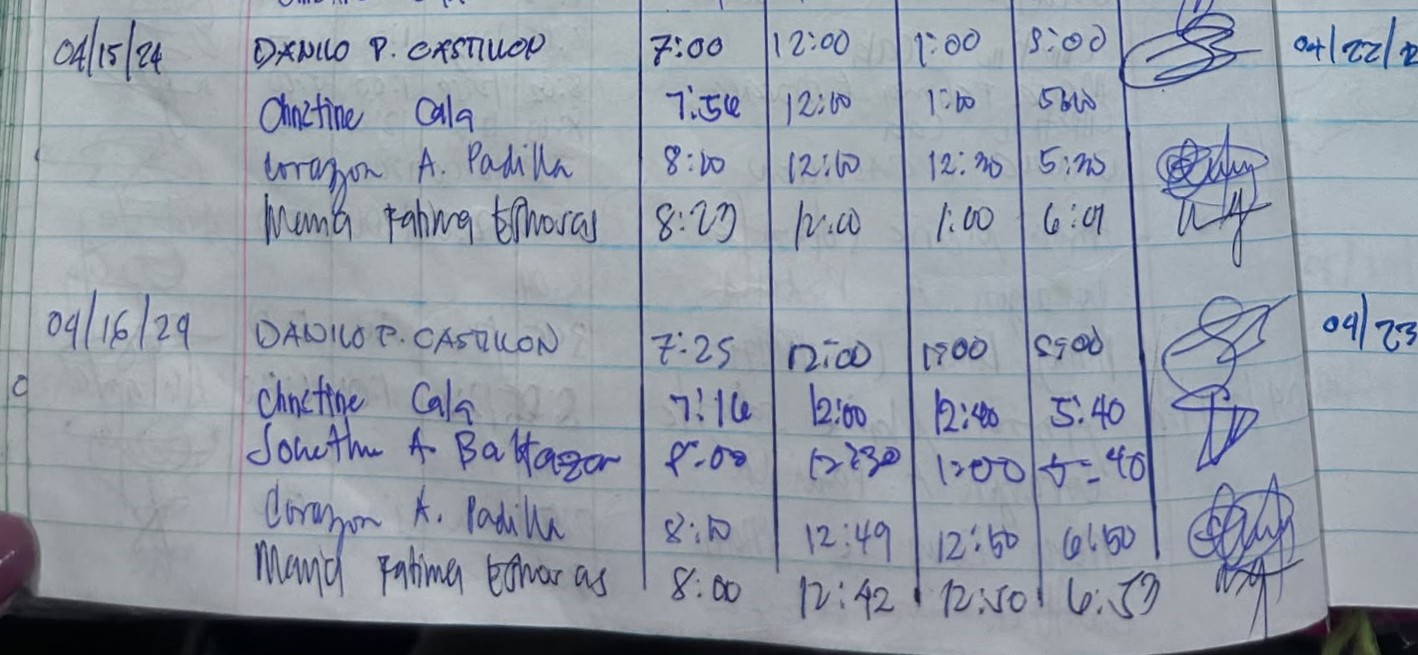 04/15/24 DANILO P. CASTILLON 7:00 12:00 1:00 5:00
Christine Cala 7:56 12:00 1:00 5:00
Corazon A. Padilla 8:00 12:00 12:30 5:30
Maria Fatima 8:23 12:00 1:00 6:01
04/16/24 DANILO P. CASTILLON 7:25 12:00 1:00 5:00
Christine Cala 7:16 12:00 12:40 5:40
A. Baltazar 8:00 12:30 1:00 5:40
Corazon A. Padilla 8:10 12:49 12:50 6:50
Maria Fatima 8:00 12:42 12:50 6:53
04/22/2
04/23